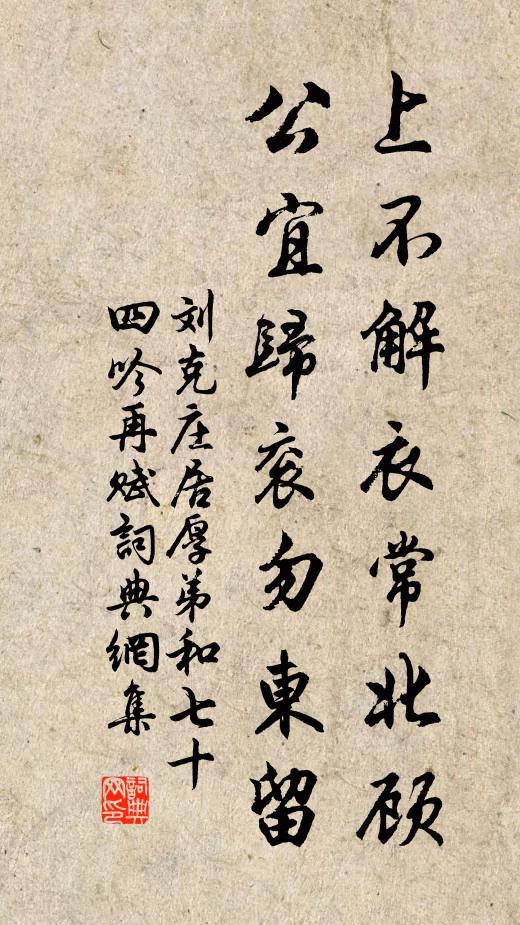 上不解衣常北顾
公宜歸衮勿東留
刘克庄居厚弟和七十
四吟再赋詞典網集
詞典网印